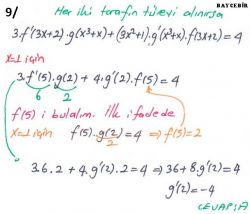 BAYCEBİR
9/ Her iki tarafın türevi alınırsa
3.f'(3x+2).g(x³+x)+(3x²+1).g'(x³+x).f(3x+2)=4
x=1 için
3.f'(5).g(2)+4.g'(2).f(5)=4
6 2
f(5) i bulalım. İlk ifadede
x=1 için f(5).g(2)=4 ⇒ f(5)=2
2
3.6.2+4.g'(2).2=4 ⇒ 36+8.g'(2)=4
g'(2)=-4
CEVAP:A